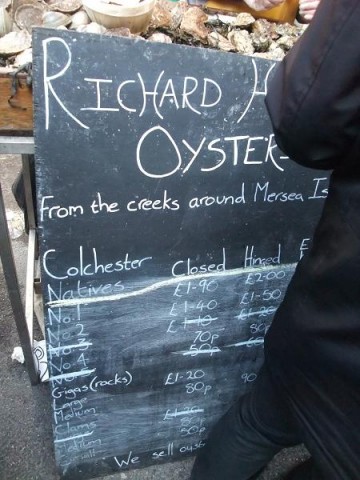 RICHARD H
OYSTER
From the creeks around Mersea Is
Colchester Closed Hinged E
Natives £1-90 £2-00
No.1 £1-40 £1-50
No.2 £1-10
No.3 70p 80p
No.4 60p
Gigas (rocks) £1-20 90
Large 80p
Medium
Clams £1-20
Medium
50p
We sell oyst